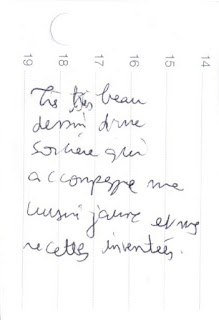 14
15
16
17
18
19
Très très beau
dessin d'une
sorcière qui
accompagne ma
cuisine jaune et mes
recettes inventées.